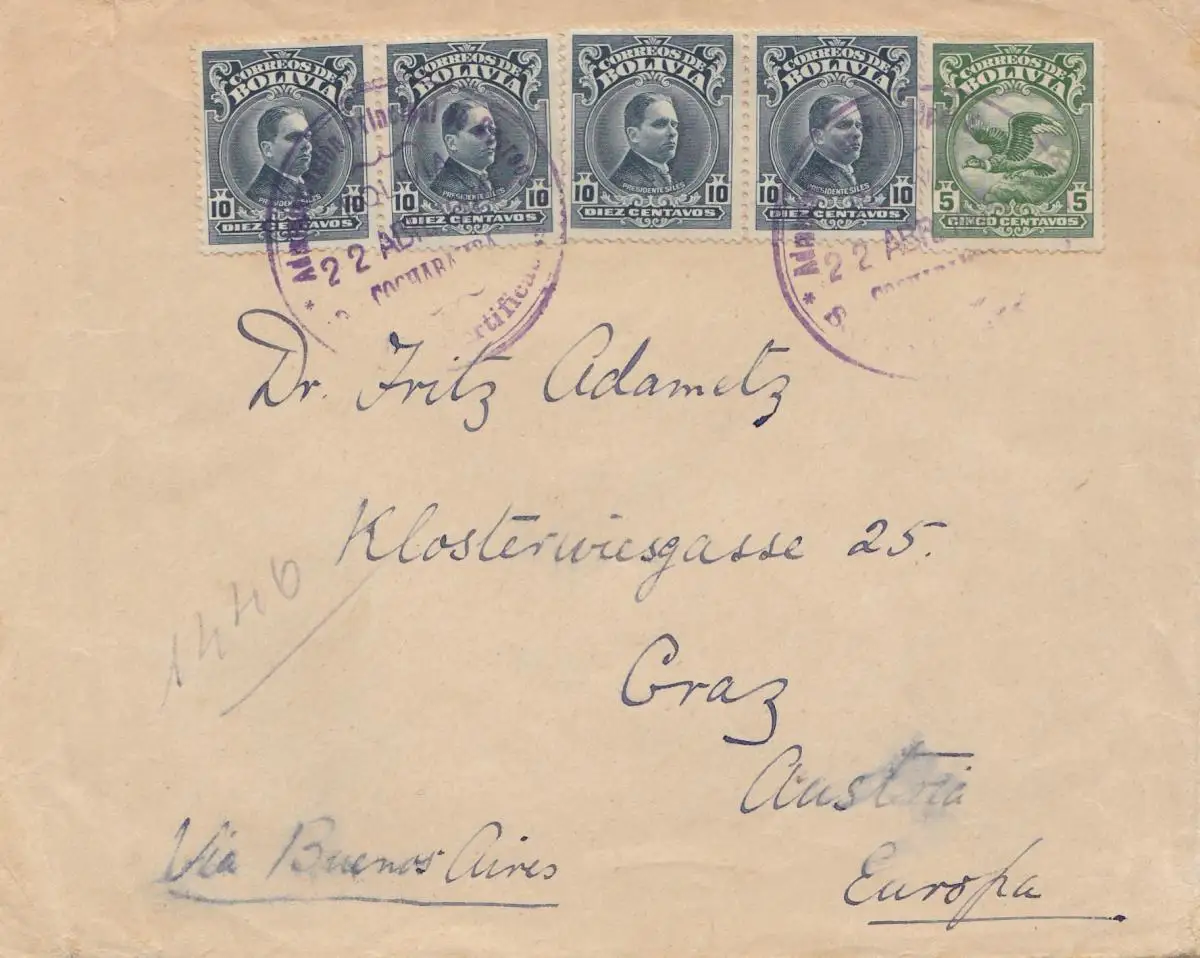 CORREOS DE BOLIVIA
PRESIDENTE SILES
10 10
DIEZ CENTAVOS
CORREOS DE BOLIVIA
PRESIDENTE SILES
10 10
DIEZ CENTAVOS
CORREOS DE BOLIVIA
PRESIDENTE SILES
10 10
DIEZ CENTAVOS
CORREOS DE BOLIVIA
PRESIDENTE SILES
10 10
DIEZ CENTAVOS
CORREOS DE BOLIVIA
5 5
CINCO CENTAVOS
22 ABR
COCHABAMBA
22 ABR
Dr. Fritz Adametz
Klosterwiesgasse 25.
1446
Graz
Austria
Via Buenos Aires
Europa